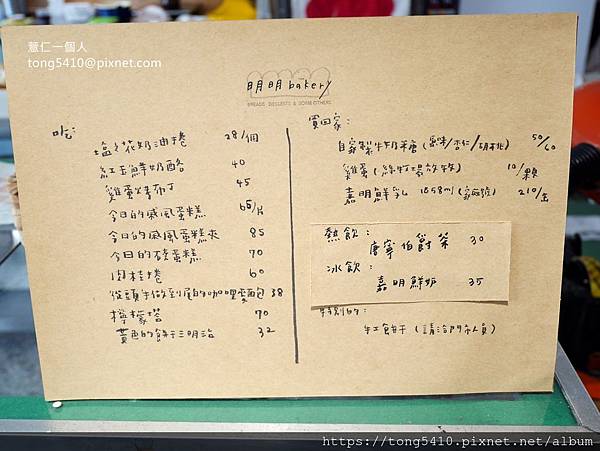 薏仁一個人
tong5410@pixnet.com
明明bakery
BREADS, DESSERTS & SOME OTHERS
吃:
鹽之花奶油捲 28/個
紅玉鮮奶酪 40
雞蛋烤布丁 45
今日的戚風蛋糕 65/片
今日的戚風蛋糕夾 85
今日的磅蛋糕 70
肉桂捲 60
從頭年做到尾的咖哩麵包 38
檸檬塔 70
黃色的餅干三明治 32
買回家:
自家製牛奶糖(原味/杏仁/胡椒) 50/60
雞蛋(綠牧場放牧) 10/顆
嘉明鮮乳 1858ml(家庭號) 210/缶
熱飲:
唐寧伯爵茶 30
冰飲:
嘉明鮮奶 35
特別的:
手工餅干(請洽門市人員)
https://tong5410.pixnet.net/album